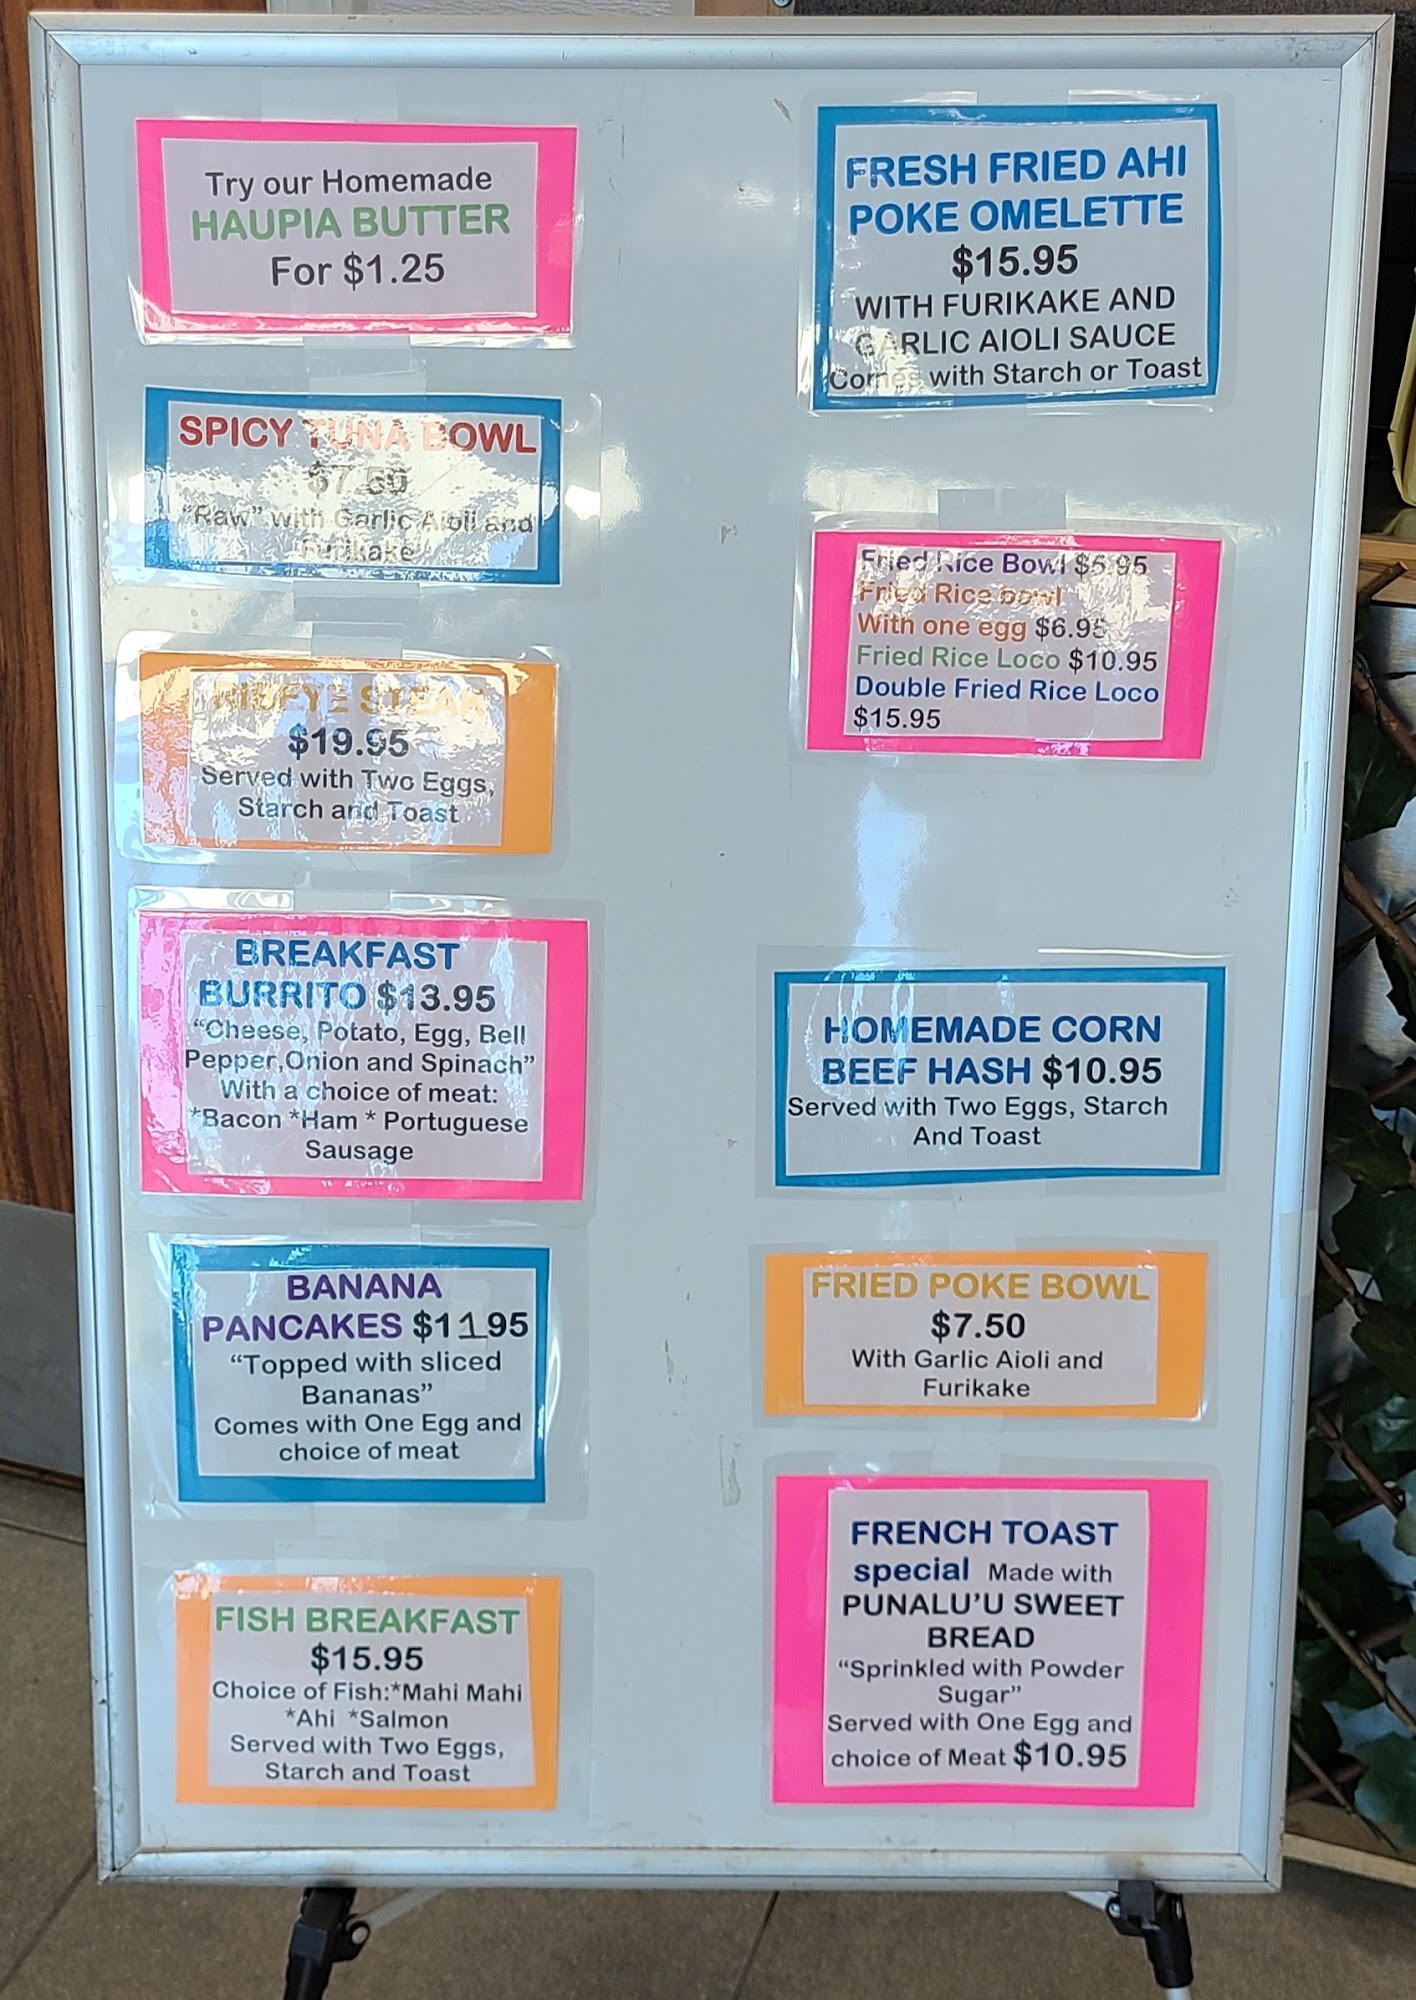 Try our Homemade
HAUPIA BUTTER
For $1.25
SPICY TUNA BOWL
$7.50
"Raw" with Garlic Aioli and
Furikake
RIBEYE STEAK
$19.95
Served with Two Eggs,
Starch and Toast
BREAKFAST
BURRITO $13.95
"Cheese, Potato, Egg, Bell
Pepper,Onion and Spinach"
With a choice of meat:
*Bacon *Ham * Portuguese
Sausage
BANANA
PANCAKES $11.95
"Topped with sliced
Bananas"
Comes with One Egg and
choice of meat
FISH BREAKFAST
$15.95
Choice of Fish:*Mahi Mahi
*Ahi *Salmon
Served with Two Eggs,
Starch and Toast
FRESH FRIED AHI
POKE OMELETTE
$15.95
WITH FURIKAKE AND
GARLIC AIOLI SAUCE
Comes with Starch or Toast
Fried Rice Bowl $5.95
Fried Rice bowl
With one egg $6.95
Fried Rice Loco $10.95
Double Fried Rice Loco
$15.95
HOMEMADE CORN
BEEF HASH $10.95
Served with Two Eggs, Starch
And Toast
FRIED POKE BOWL
$7.50
With Garlic Aioli and
Furikake
FRENCH TOAST
special Made with
PUNALU'U SWEET
BREAD
"Sprinkled with Powder
Sugar"
Served with One Egg and
choice of Meat $10.95